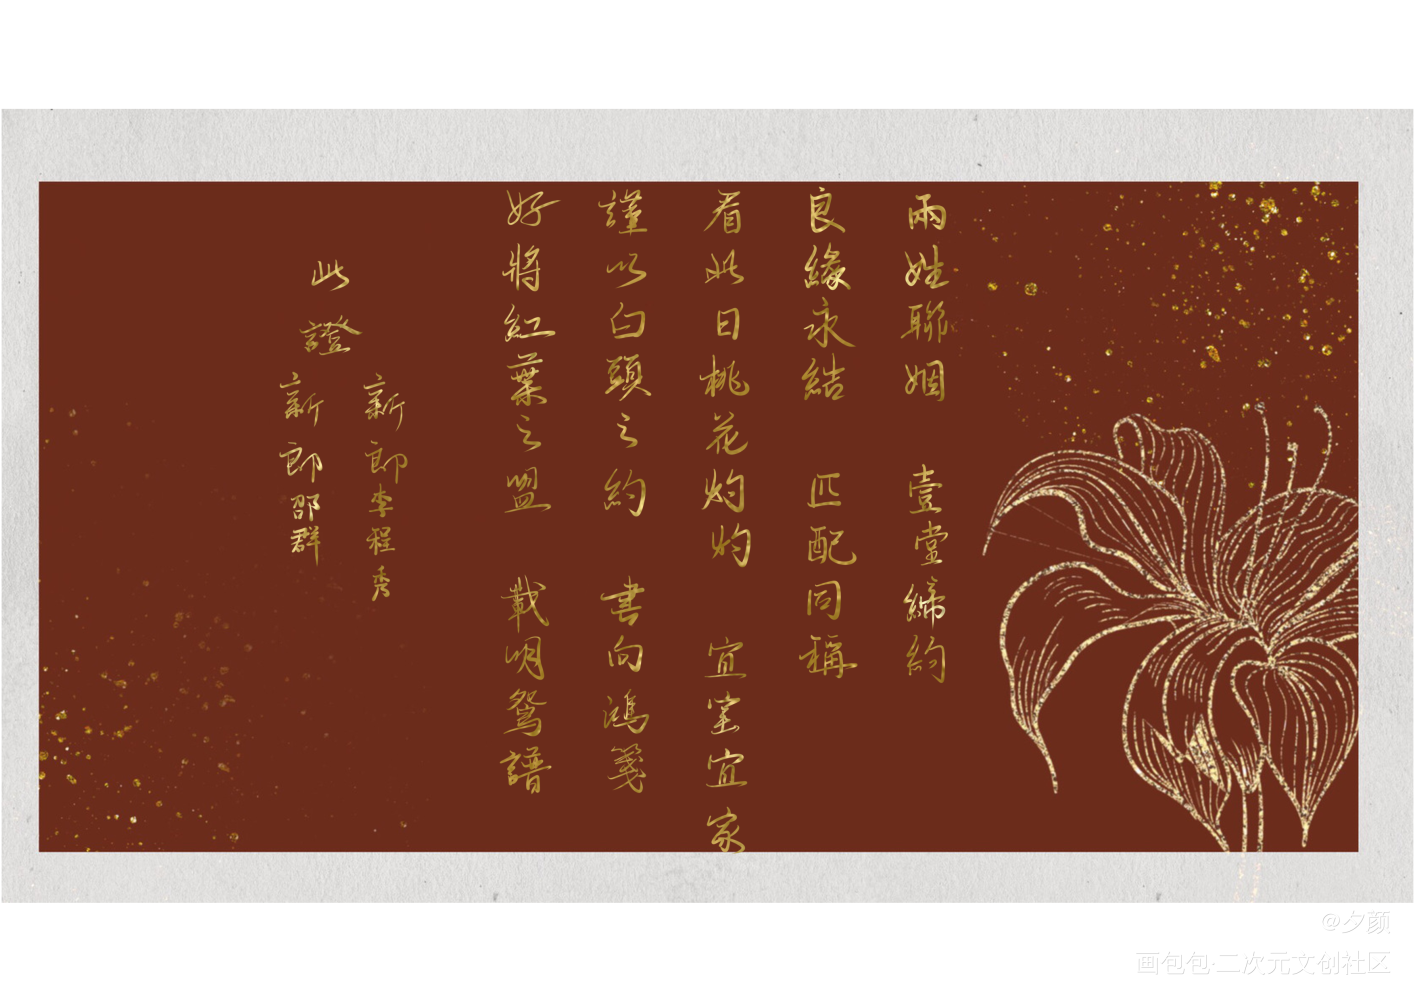 兩姓聯姻 壹堂締約
良緣永結 匹配同稱
看此日桃花灼灼 宜室宜家
謹以白頭之約 書向鴻箋
好將紅葉之盟 載明鴛譜
此證
新郎李程秀
新郎邵群
@夕颜
画包包·二次元文创社区